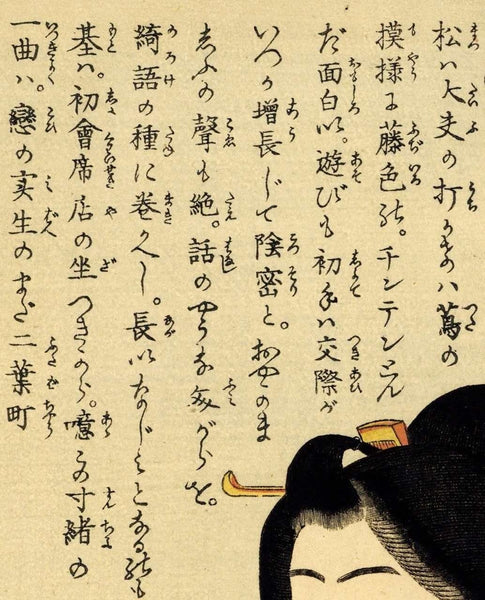 松ハ大夫の打 ハ蔦の
摸様に藤色 。チンテンとん
だ面白い。遊びも初手ハ交際が
いつか増長じて陰密と。おやのま
 の聲も絶。話のやうな がらを。
綺語の種に巻かへし。長いなじミとなる も
基ハ。初會席店の坐つきから。憶 の寸緒の
一曲ハ。戀の実生のまだ二葉町